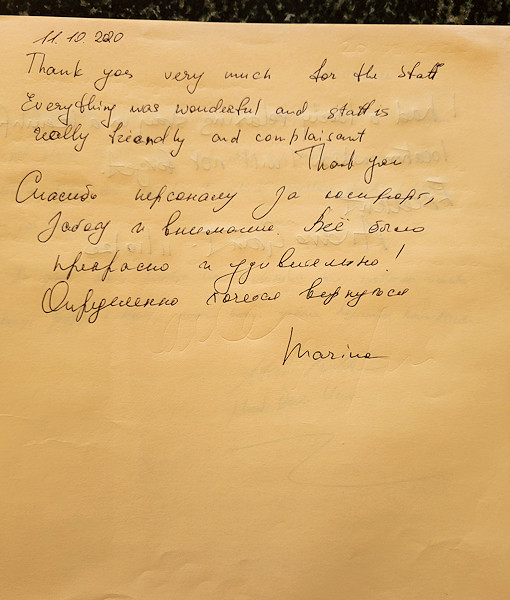 11.10 2020
Thank you very much for the staff
Everything was wonderful and staff is
really friendly and complaisant
Thank you
Спасибо персоналу за комфорт,
заботу и внимание. Всё было
прекрасно и удивительно!
Определенно хочется вернуться
Marina